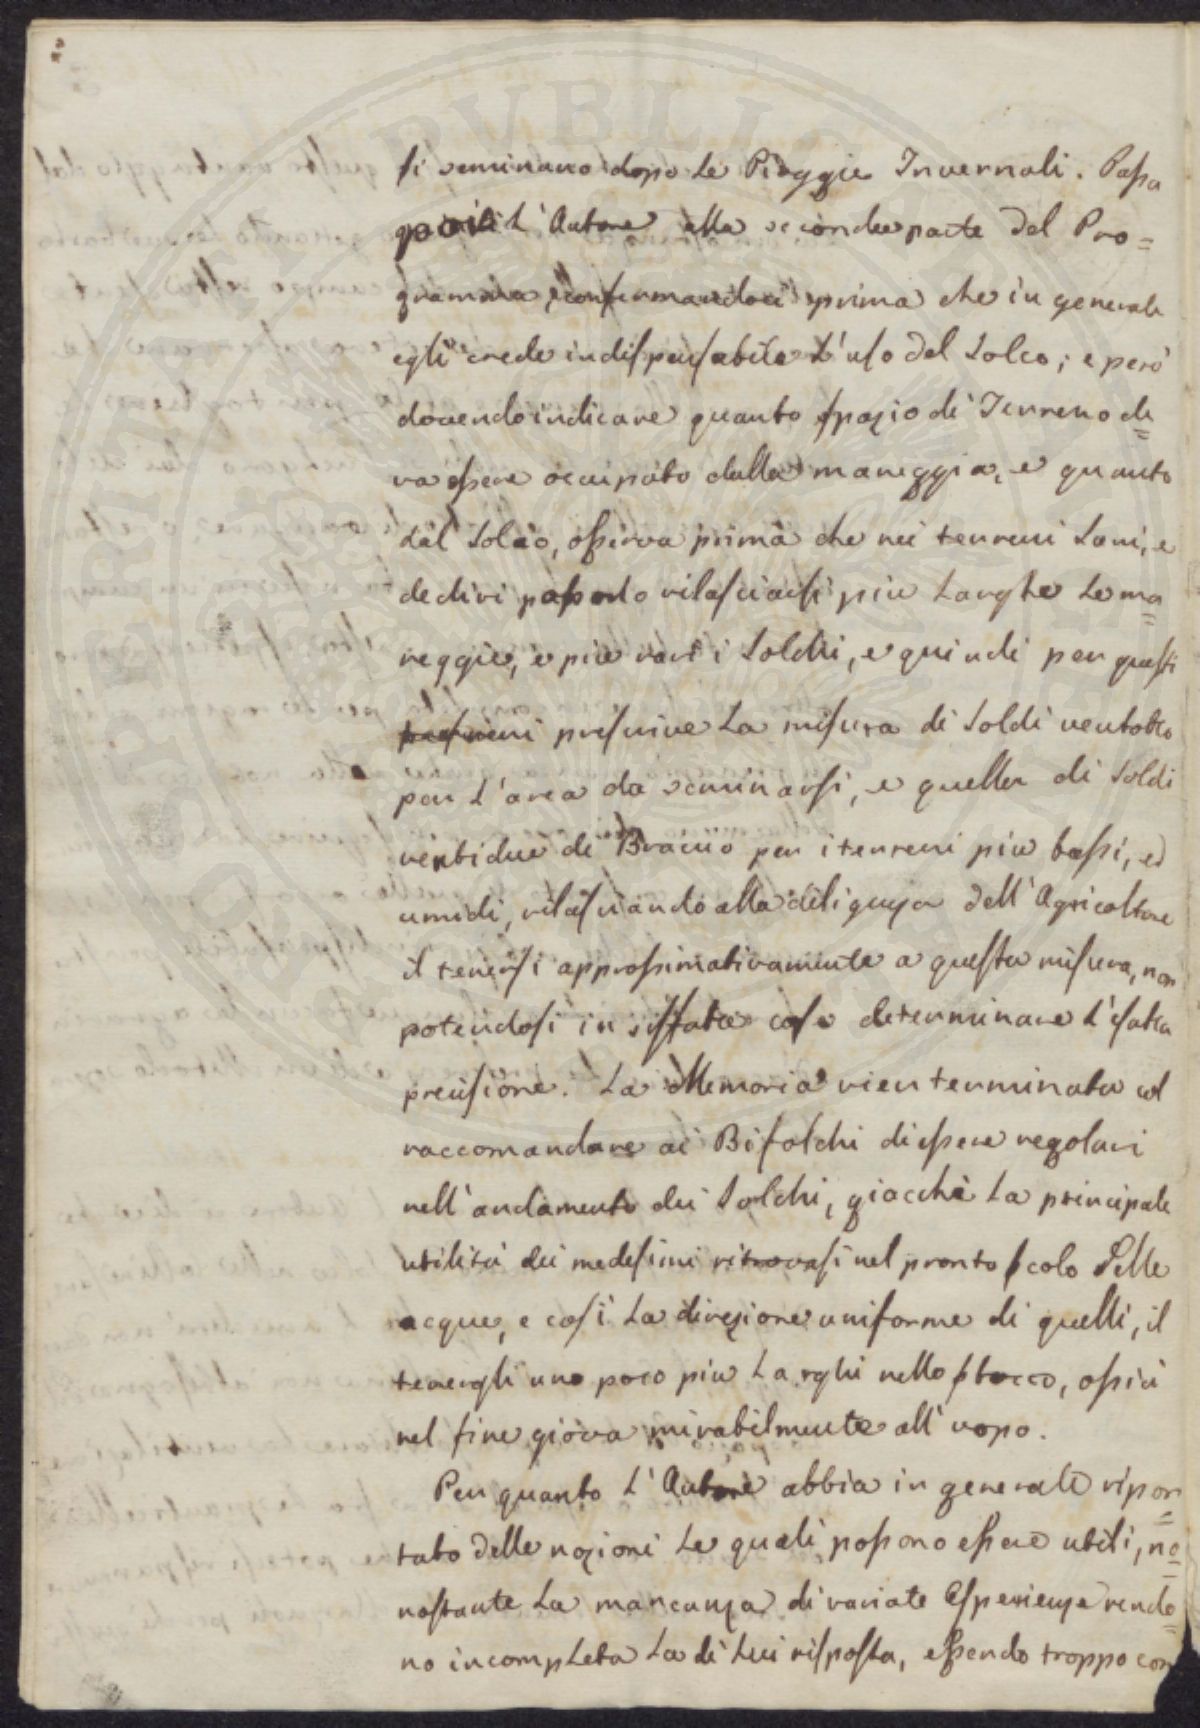 si seminano dopo le Pioggie Invernali. Passa
poi l'Autore alla seconda parte del Pro=
gramma confermandoci prima che in generale
egli crede indispensabile l'uso del Solco; e però
dovendo indicare quanto spazio di Terreno de=
va essere occupato dalla mareggia, e quanto
dal Solco, osserva prima che nei terreni sani, e
declivi possono rilasciarsi più larghe le ma=
reggie, e più rari i Solchi, e quindi per questi
terreni prescrive la misura di Soldi ventotto
per l'area da seminarsi, e quella di Soldi
ventidue di Braccio per i terreni più bassi, ed
umidi, rilasciando alla diligenza dell'Agricoltore
il tenersi approssimativamente a questa misura, non
potendosi in siffatte cose determinare l'esatta
precisione. La Memoria vien terminata col
raccomandare ai Bifolchi di essere regolari
nell'andamento dei Solchi, giacchè la principale
utilità dei medesimi ritrovasi nel pronto scolo delle
acque, e così la direzione uniforme di quelli, il
tenergli uno poco più larghi nello sbocco, ossia
nel fine giova mirabilmente all'uopo.
Per quanto l'Autore abbia in generale ripor=
tato delle nozioni le quali possono essere utili, no=
nostante la mancanza di variate Esperienze rendo=
no incompleta la di Lui risposta, essendo troppo con
PUBLIC